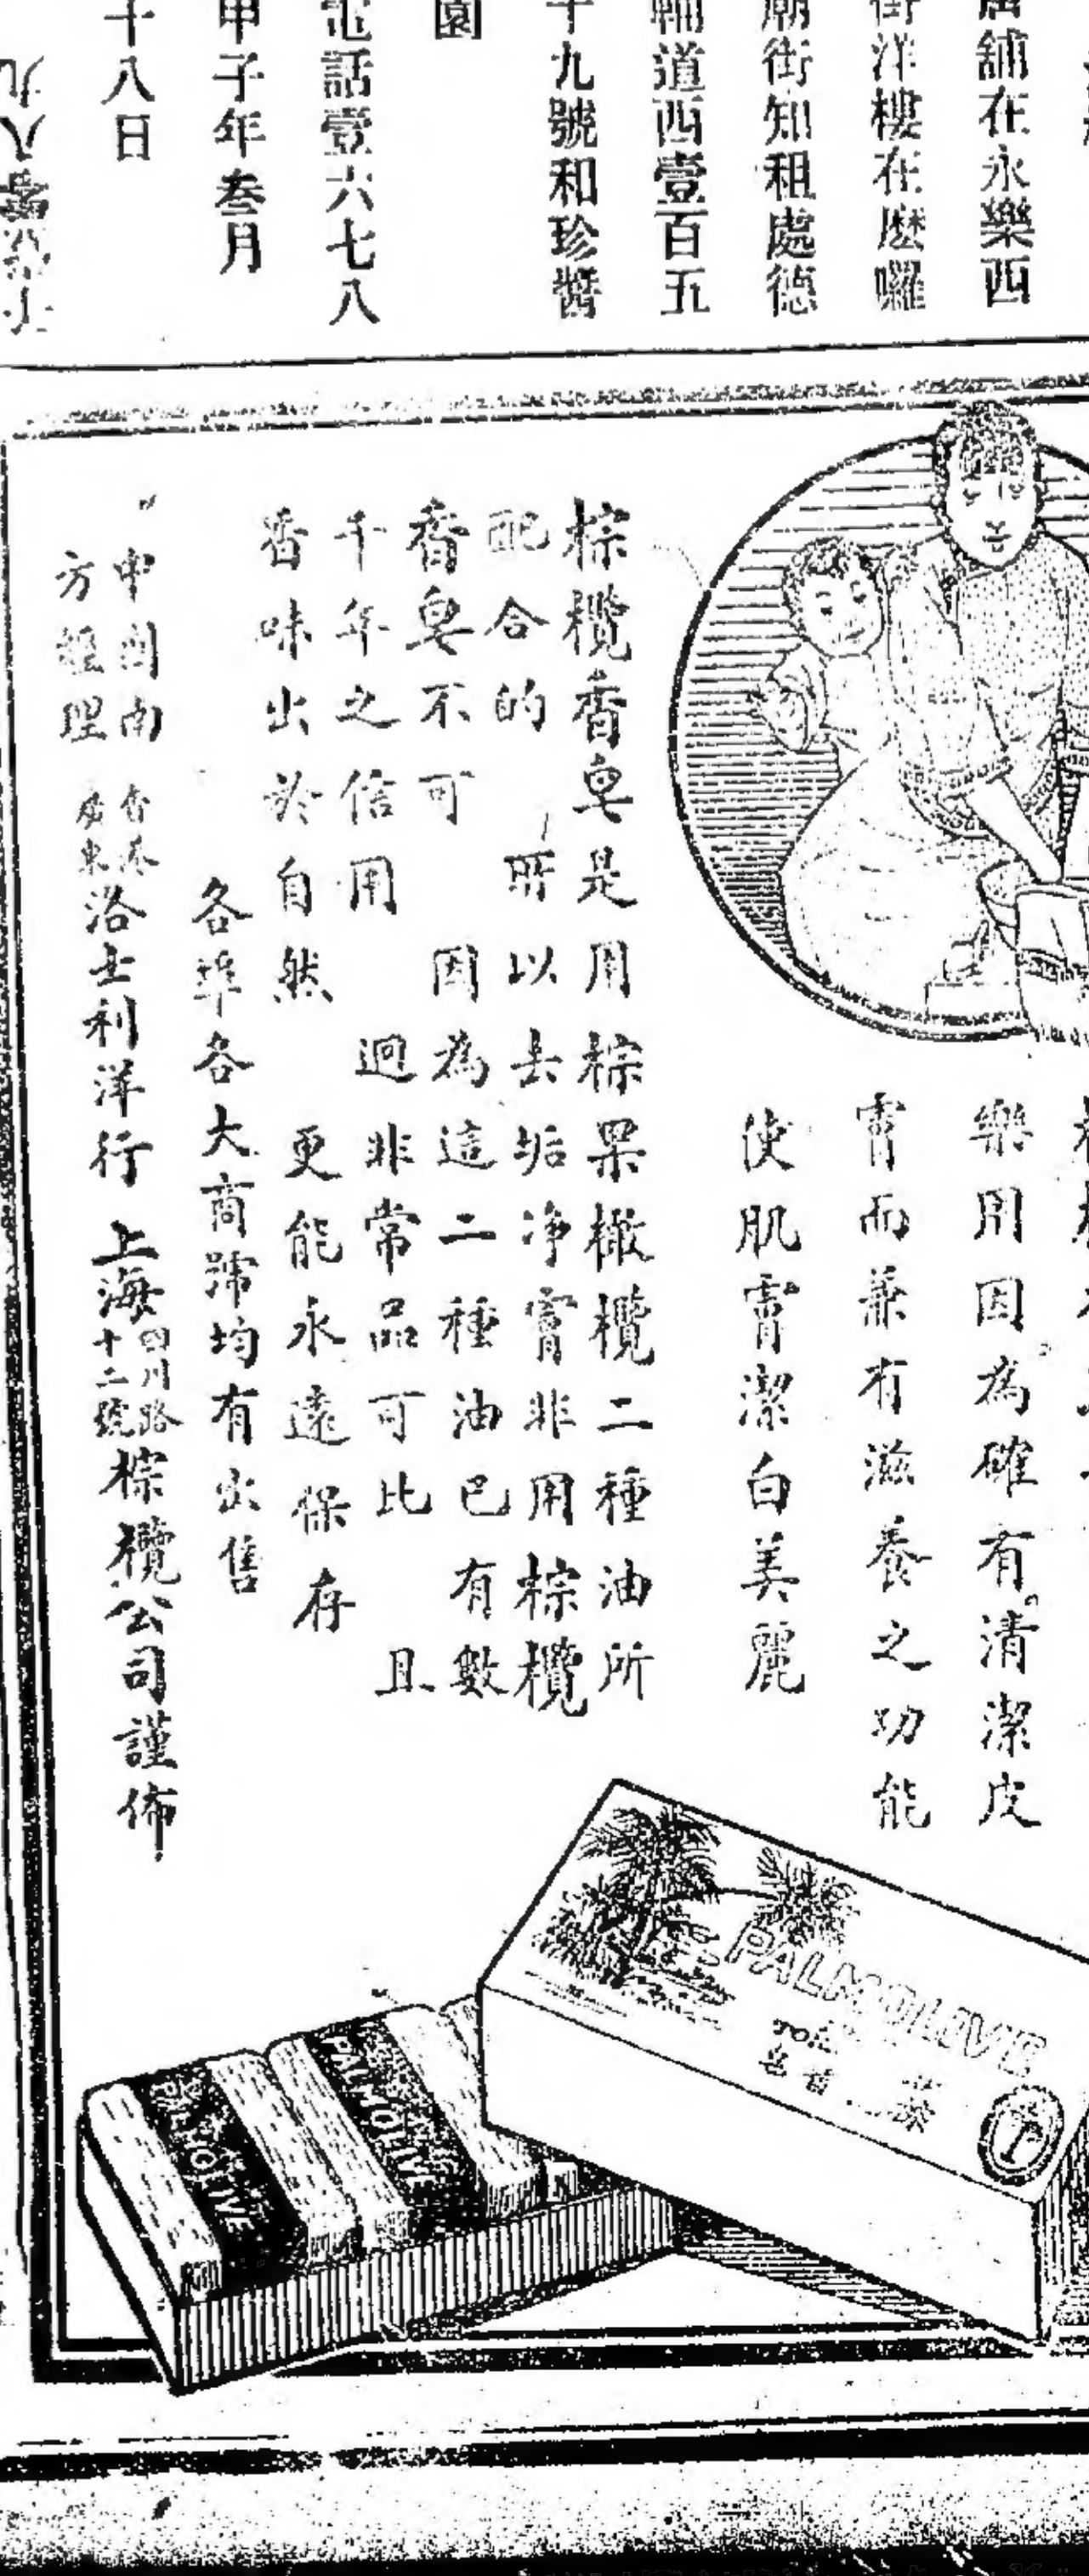 舖在永樂西
街洋樓在麼囉
廟街知租處德
輔道西壹百五
十九號和珍醬
園
電話壹六七八
甲子年叁月
十八日
樂用因為確有清潔皮
膚而兼有滋養之功能
使肌膚潔白美麗
棕欖香皂是用棕果橄欖二種油所
配合的 所以去垢净膚非用棕欖
香皂不可 因為這二種油已有數
千年之信用 迥非常品可比 且
香味出於自然 更能永遠保存
各埠各大商號均有出售
中國南方經理 香港廣東 洛士利洋行 上海四川路十二號棕欖公司謹佈
PALMOLIVE
PALMOLIVE
PALMOLIVE